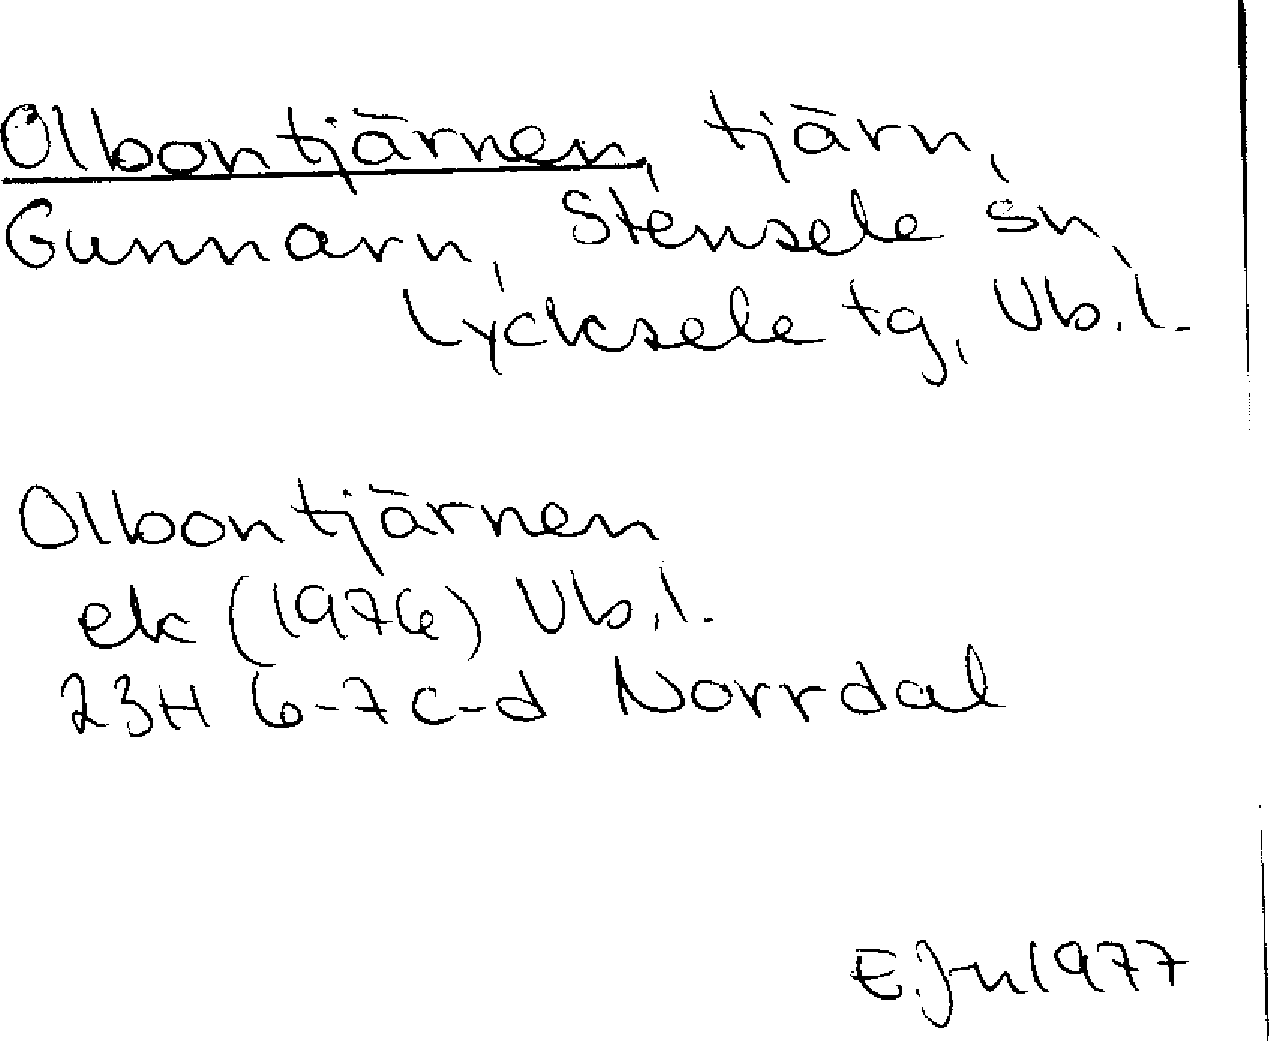 Olbontjärnen, tjärn,
Gunnarn, Stensele sn,
Lycksele tg, Vb.l.
Olbontjärnen
ek (1976) Vb.l.
23H 6-7c-d Norrdal
E.Jn 1977